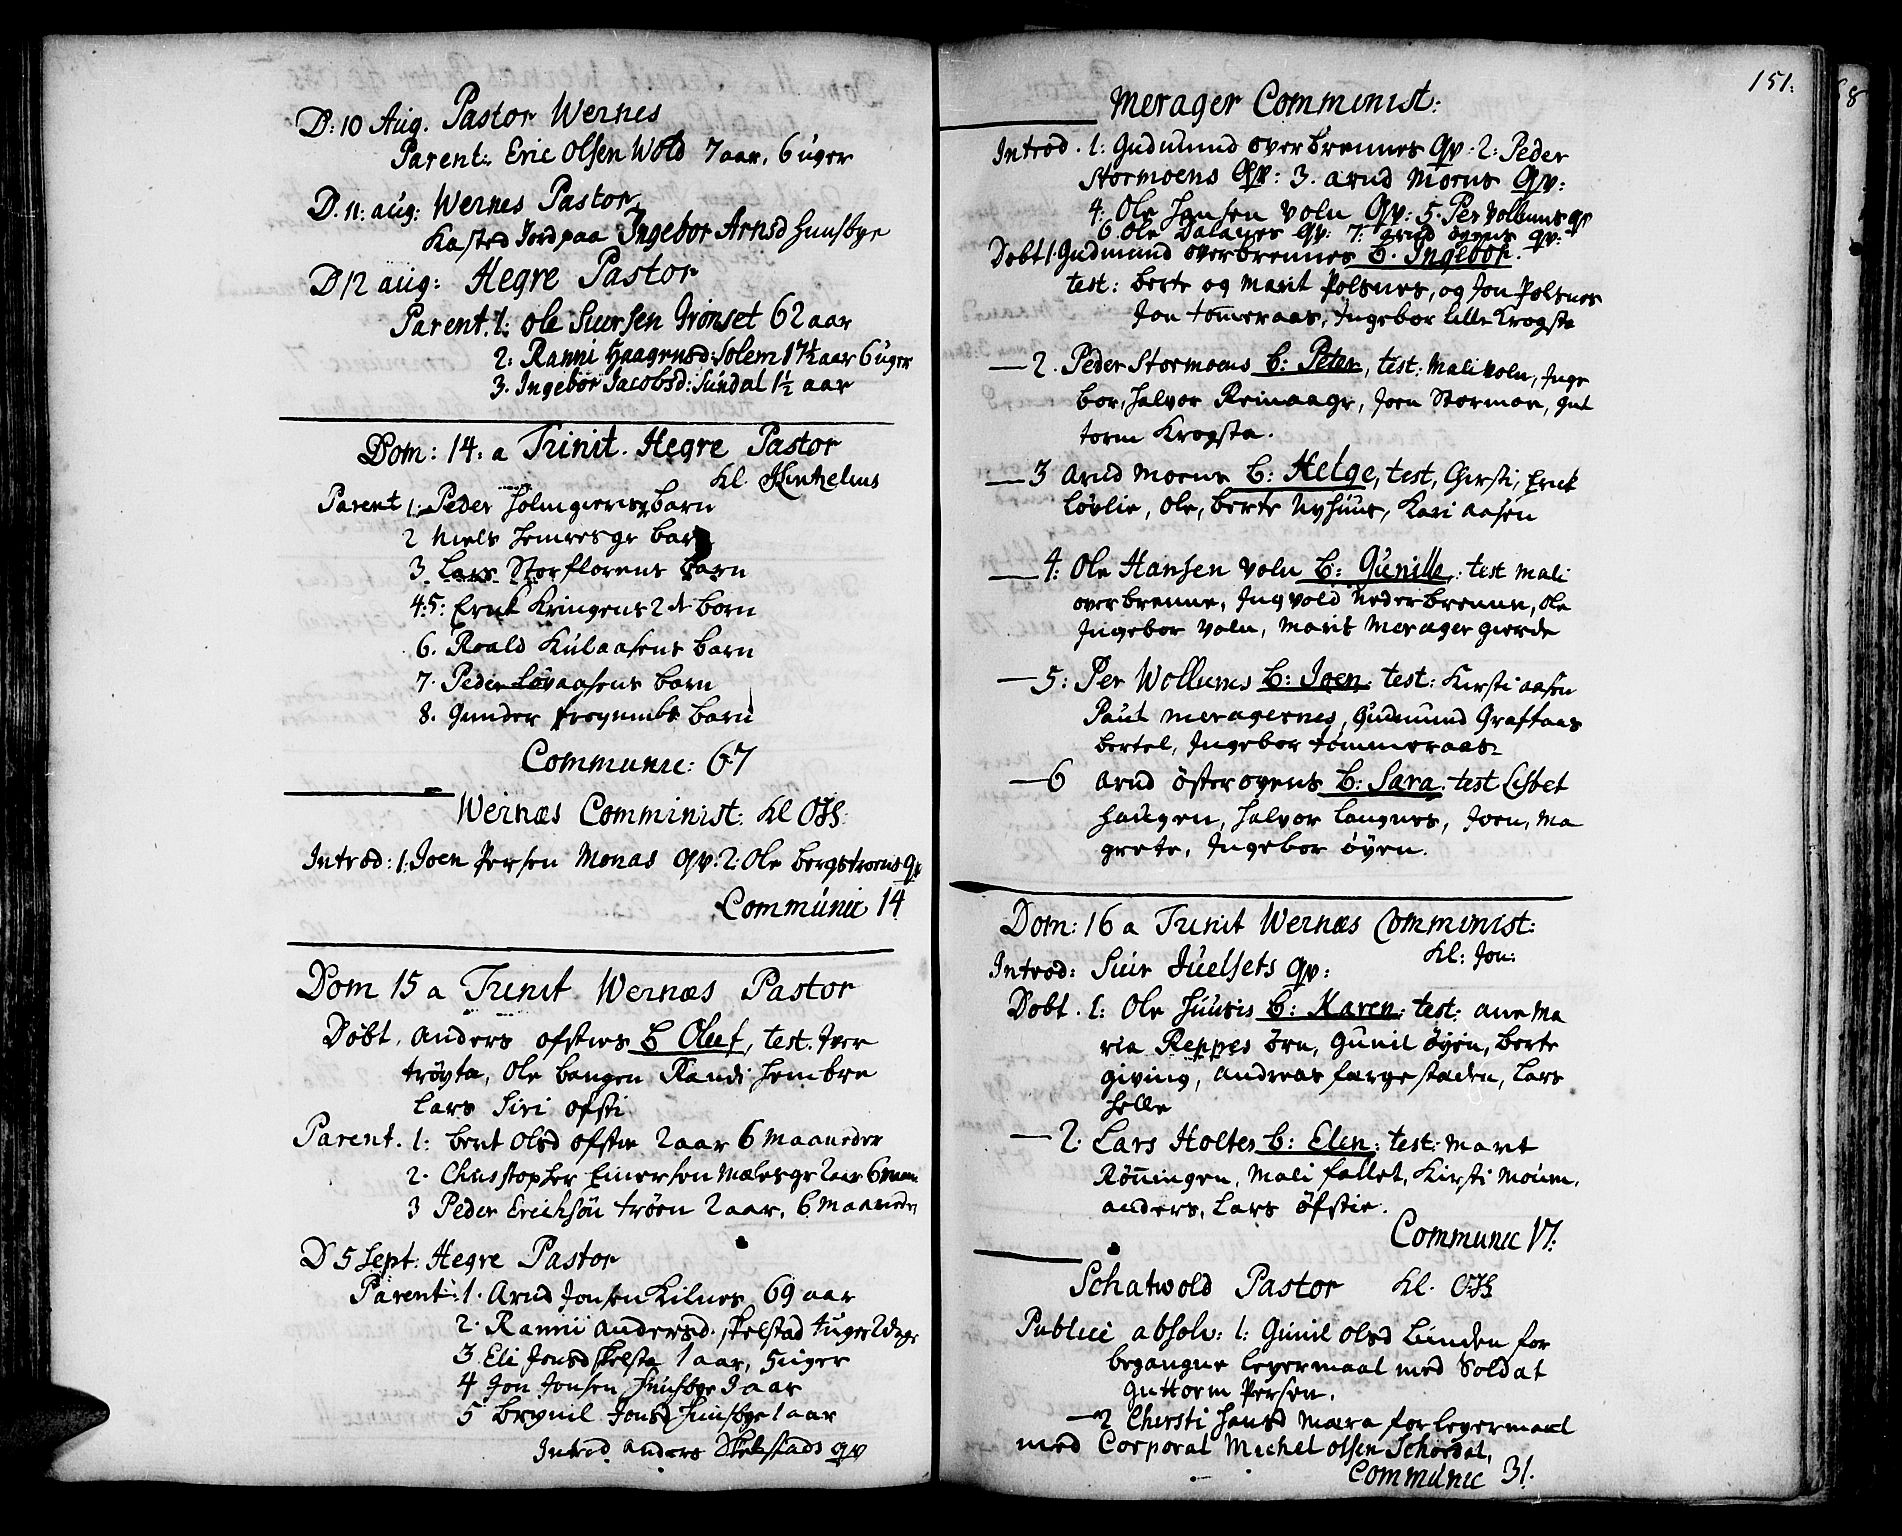 D: 10 Aug. Pastor Wernes
Parent: Eric Olsen Wold 7 aar, 6 uger
D. 11: aug: Wernes Pastor
Kasted Jord paa Ingebor Arnsd Huusbye
D 12 aug: Hegre Pastor
Parent. 1: Ole Siursen Grønset 62 aar
2: Ranni Haagensd: Solem 17½ aar 6 uger
3. Ingebor Jacobsd: Sundal 1½ aar
Dom: 14: a Trinit. Hegre Pastor
Kl.
Parent 1: Peder barn
2 Niels barn
3 Lars Storflorens barn
4:5: Erick Kringens 2 de børn
6. Roald Kulaasens barn
7. Peder Løvaasens barn
8. Gunder barn
Communic: 67
Wernæs Comminist: Kl OJS:
Introd: 1: Joen Persen Monas qv: 2: Ole Bergstroens qv
Communic 14
Dom 15 a Trinit Wernæs Pastor
Døbt. Anders Ofsties B Oluf, test. Iver
trøyta, Ole bangen Randi Hembre
Lars Siri Ofsti
Parent. 1: Berit Olsd Ofstie 2 aar 6 Maaneder
2. Christopher Einersen Mælesgr 2 aar 6 maan
3 Peder Erichsøn trøen 2 aar, 6 Maaneder
D 5 Sept: Hegre Pastor
Parent: 1. Arnd Jonsen Kilnes 69 aar
2. Ranni Andersd. Skelstad 1 uger 2 dage
3. Eli Jonsd Skelsta 1 aar, 5 uger
4 Jon Jonsen Huusbye 3 aar
5 Brynil Jonsd Huusbye 1 aar
Introd Anders Skelstads qv
151:
Merager Comminist:
Introd. 1: Gudmund overbrennes qv: 2: Peder
Stormoens qv: 3. Arnd Moens qv:
4: Ole Hansen Voln qv: 5. Per Vollums qv
6 Ole Dalanes qv: 7: Arnd øyens qv:
Døbt 1. Gudmund overbrennes B. Ingebor.
test: Berte og Marit Polsnes, og Jon Polsnes
Jon tomeraas, Ingebor Lille Krogsta
— 2. Peder Stormoens B: Peter, test: Mali Voln, Inge
bor, Halvor Reinaagr, Joen Stormoe, Gut
torm Krogsta.
— 3 Arnd Moens B: Helge, test, Chersti, Erick
Løvlie, Ole, Berte Nyhuus, Kari aasen
— 4: Ole Hansen Voln B: Gunilla: test Mali
overbrenne, Ingvold Nederbrenne, Ole
Ingebor Voln, Marit Merager gierde
— 5: Per Wollums B: Joen: test: Kirsti aasen
Paul meragernes, Gudmund Graftaas
Bertel, Ingebor tømmeraas
— 6 Arnd østerøyens B: Sara: test Lisbet
Haugen, Halvor Langnes, Joen, Ma
grete, Ingebor øyen.
Dom: 16 a Trinit Wernæs Comminist:
Kl: Jon:
Introd: Siur Juelsets qv:
Døbt. 1: Ole Huusis B: Karen: test: ane Ma
ria Reppes ørn, Gunil øyen, Berte
giving, Andreas fargestaden, Lars
Helle
— 2. Lars Holtes B: Elen: test: Marit
Rønningen, Mali fallet, Kirsti Mouen,
anders, Lars Øfstie.
Communic 17:
Schatwold Pastor Kl. OJS
Publice absolv: 1: Gunil Olsd Lunden for
begangne Leyermaal med Soldat
Guttorm Persen.
— 2 Chersti Hansd Mæra for Leyermaal
med Corporal Michel Olsen Schørdal,
Communic 31.